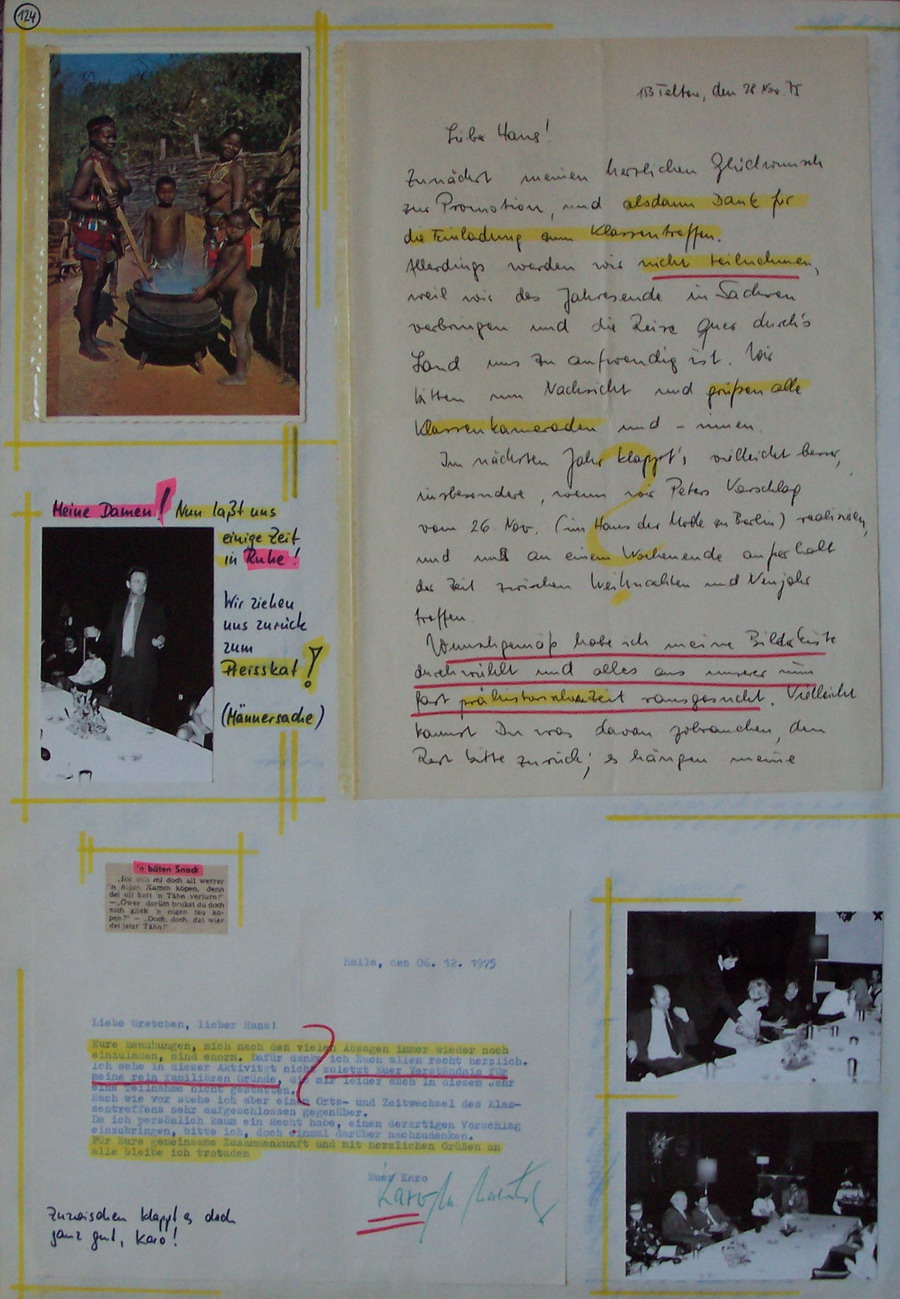 124
153 Teltow, den 28 Nov. 75
Lieber Hans!
Zunächst meinen herzlichen Glückwunsch
zur Promotion, und alsdann Dank für
die Einladung zum Klassentreffen.
Allerdings werden wir nicht teilnehmen,
weil wir das Jahresende in Sachsen
verbringen und die Reise quer durch's
Land uns zu aufwendig ist. Wir
bitten um Nachsicht und grüßen alle
Klassenkameraden und - innen.
Im nächsten Jahr klappt's vielleicht besser,
insbesondere, wenn wir Peters Vorschlag
vom 26. Nov. (im Haus der Mode in Berlin) realisieren,
und uns an einem Wochenende außerhalb
der Zeit zwischen Weihnachten und Neujahr
treffen.
Wunschgemäß habe ich meine Bilderkiste
durchwühlt und alles aus unserer nun
fast prähistorischen Zeit rausgesucht. Vielleicht
kannst Du was davon gebrauchen, den
Rest bitte zurück; es hängen meine
Meine Damen! Nun laßt uns
einige Zeit
in Ruhe!
Wir ziehen
uns zurück
zum
Preisskat!
(Männersache)
'n bäten Snack
mi doch all werrer
'n nigen Kamm köpen, denn
dei oll hett 'n Tähn verlurn!"
— „Ower dorüm brukst du doch
nich gliek 'n nigen tau kö-
pen?" — „Doch, doch, dat wier
dei letzt Tähn!"
Halle, den 06. 12. 1975
Liebe Gretchen, lieber Hans!
Eure Bemühungen, mich nach den vielen Absagen immer wieder noch
einzuladen, sind enorm. Dafür danke ich Euch allen recht herzlich.
Ich sehe in dieser Aktivität nicht zuletzt Euer Verständnis für
meine rein familiären Gründe, die mir leider auch in diesem Jahr
eine Teilnahme nicht gestatten.
Nach wie vor stehe ich aber einem Orts- und Zeitwechsel des Klas-
sentreffens sehr aufgeschlossen gegenüber.
Da ich persönlich kaum ein Recht habe, einen derartigen Vorschlag
einzubringen, bitte ich, doch einmal darüber nachzudenken.
Für Eure gemeinsame Zusammenkunft und mit herzlichen Grüßen an
alle bleibe ich trotzdem
Euer Karo
Karo
Inzwischen klappt es doch
ganz gut, Karo!